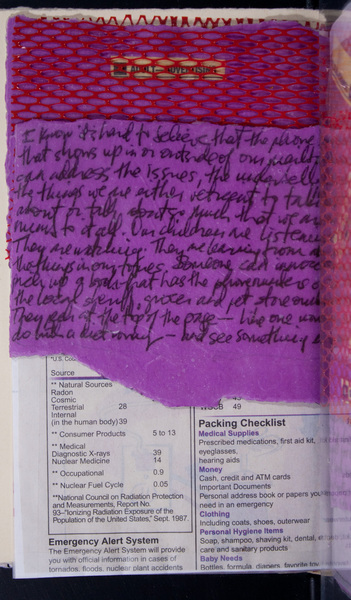 ADULT ADVERTISING
I know it's hard to believe that the phone
that shows up in or outside of our mail
can address the issues, the
the things we are either reticent to talk
about or talk about so much that we are
numb to it all. Our children are listening.
They are watching. They are learning from
the things in our times. Someone can
pick up a book that has the phone numbers of
the local sheriff, grocer and pet store
They at the top of the page — like one
do in a dictionary — and see something
*U.S.
Source
** Natural Sources
Radon
Cosmic
Terrestrial 28
Internal
(in the human body) 39
** Consumer Products 5 to 13
** Medical
Diagnostic X-rays 39
Nuclear Medicine 14
** Occupational 0.9
** Nuclear Fuel Cycle 0.05
**National Council on Radiation Protection
and Measurements, Report No.
93-"Ionizing Radiation Exposure of the
Population of the United States," Sept. 1987.
Emergency Alert System
The Emergency Alert System will provide
you with official information in cases of
tornados, floods, nuclear plant accidents
49
Packing Checklist
Medical Supplies
Prescribed medications, first aid kit,
eyeglasses,
hearing aids
Money
Cash, credit and ATM cards
Important Documents
Personal address book or papers you
need in an emergency
Clothing
Including coats, shoes, outerwear
Personal Hygiene Items
Soap, shampoo, shaving kit, dental,
care and sanitary products
Baby Needs
Bottles, formula, diapers, favorite toy